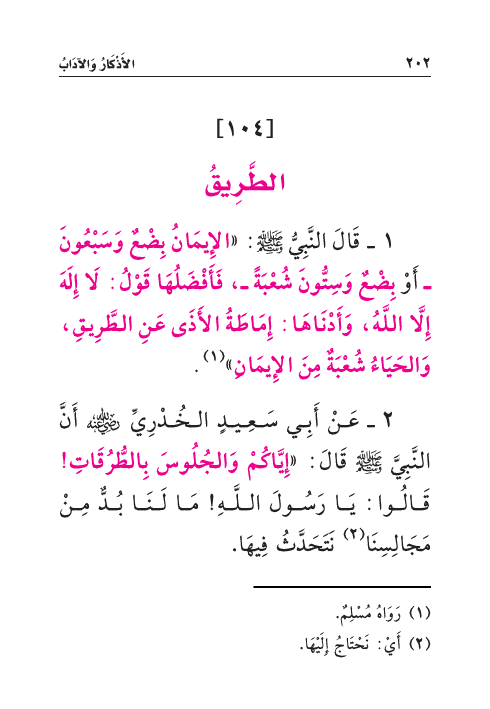 ٢٠٢ الأَذْكَارُ وَالآدَابُ
[١٠٤]
الطَّرِيقُ
١ ـ قَالَ النَّبِيُّ ﷺ: «الإِيمَانُ بِضْعٌ وَسَبْعُونَ
ـ أَوْ بِضْعٌ وَسِتُّونَ شُعْبَةً ـ، فَأَفْضَلُهَا قَوْلُ: لَا إِلَهَ
إِلَّا اللَّهُ، وَأَدْنَاهَا: إِمَاطَةُ الأَذَى عَنِ الطَّرِيقِ،
وَالحَيَاءُ شُعْبَةٌ مِنَ الإِيمَانِ»(١).
٢ ـ عَنْ أَبِي سَعِيدٍ الخُدْرِيِّ رضي الله عنه أَنَّ
النَّبِيَّ ﷺ قَالَ: «إِيَّاكُمْ وَالجُلُوسَ بِالطُّرُقَاتِ!
قَالُوا: يَا رَسُولَ اللَّهِ! مَا لَنَا بُدٌّ مِنْ
مَجَالِسِنَا(٢) نَتَحَدَّثُ فِيهَا.
(١) رَوَاهُ مُسْلِمٌ.
(٢) أَيْ: نَحْتَاجُ إِلَيْهَا.